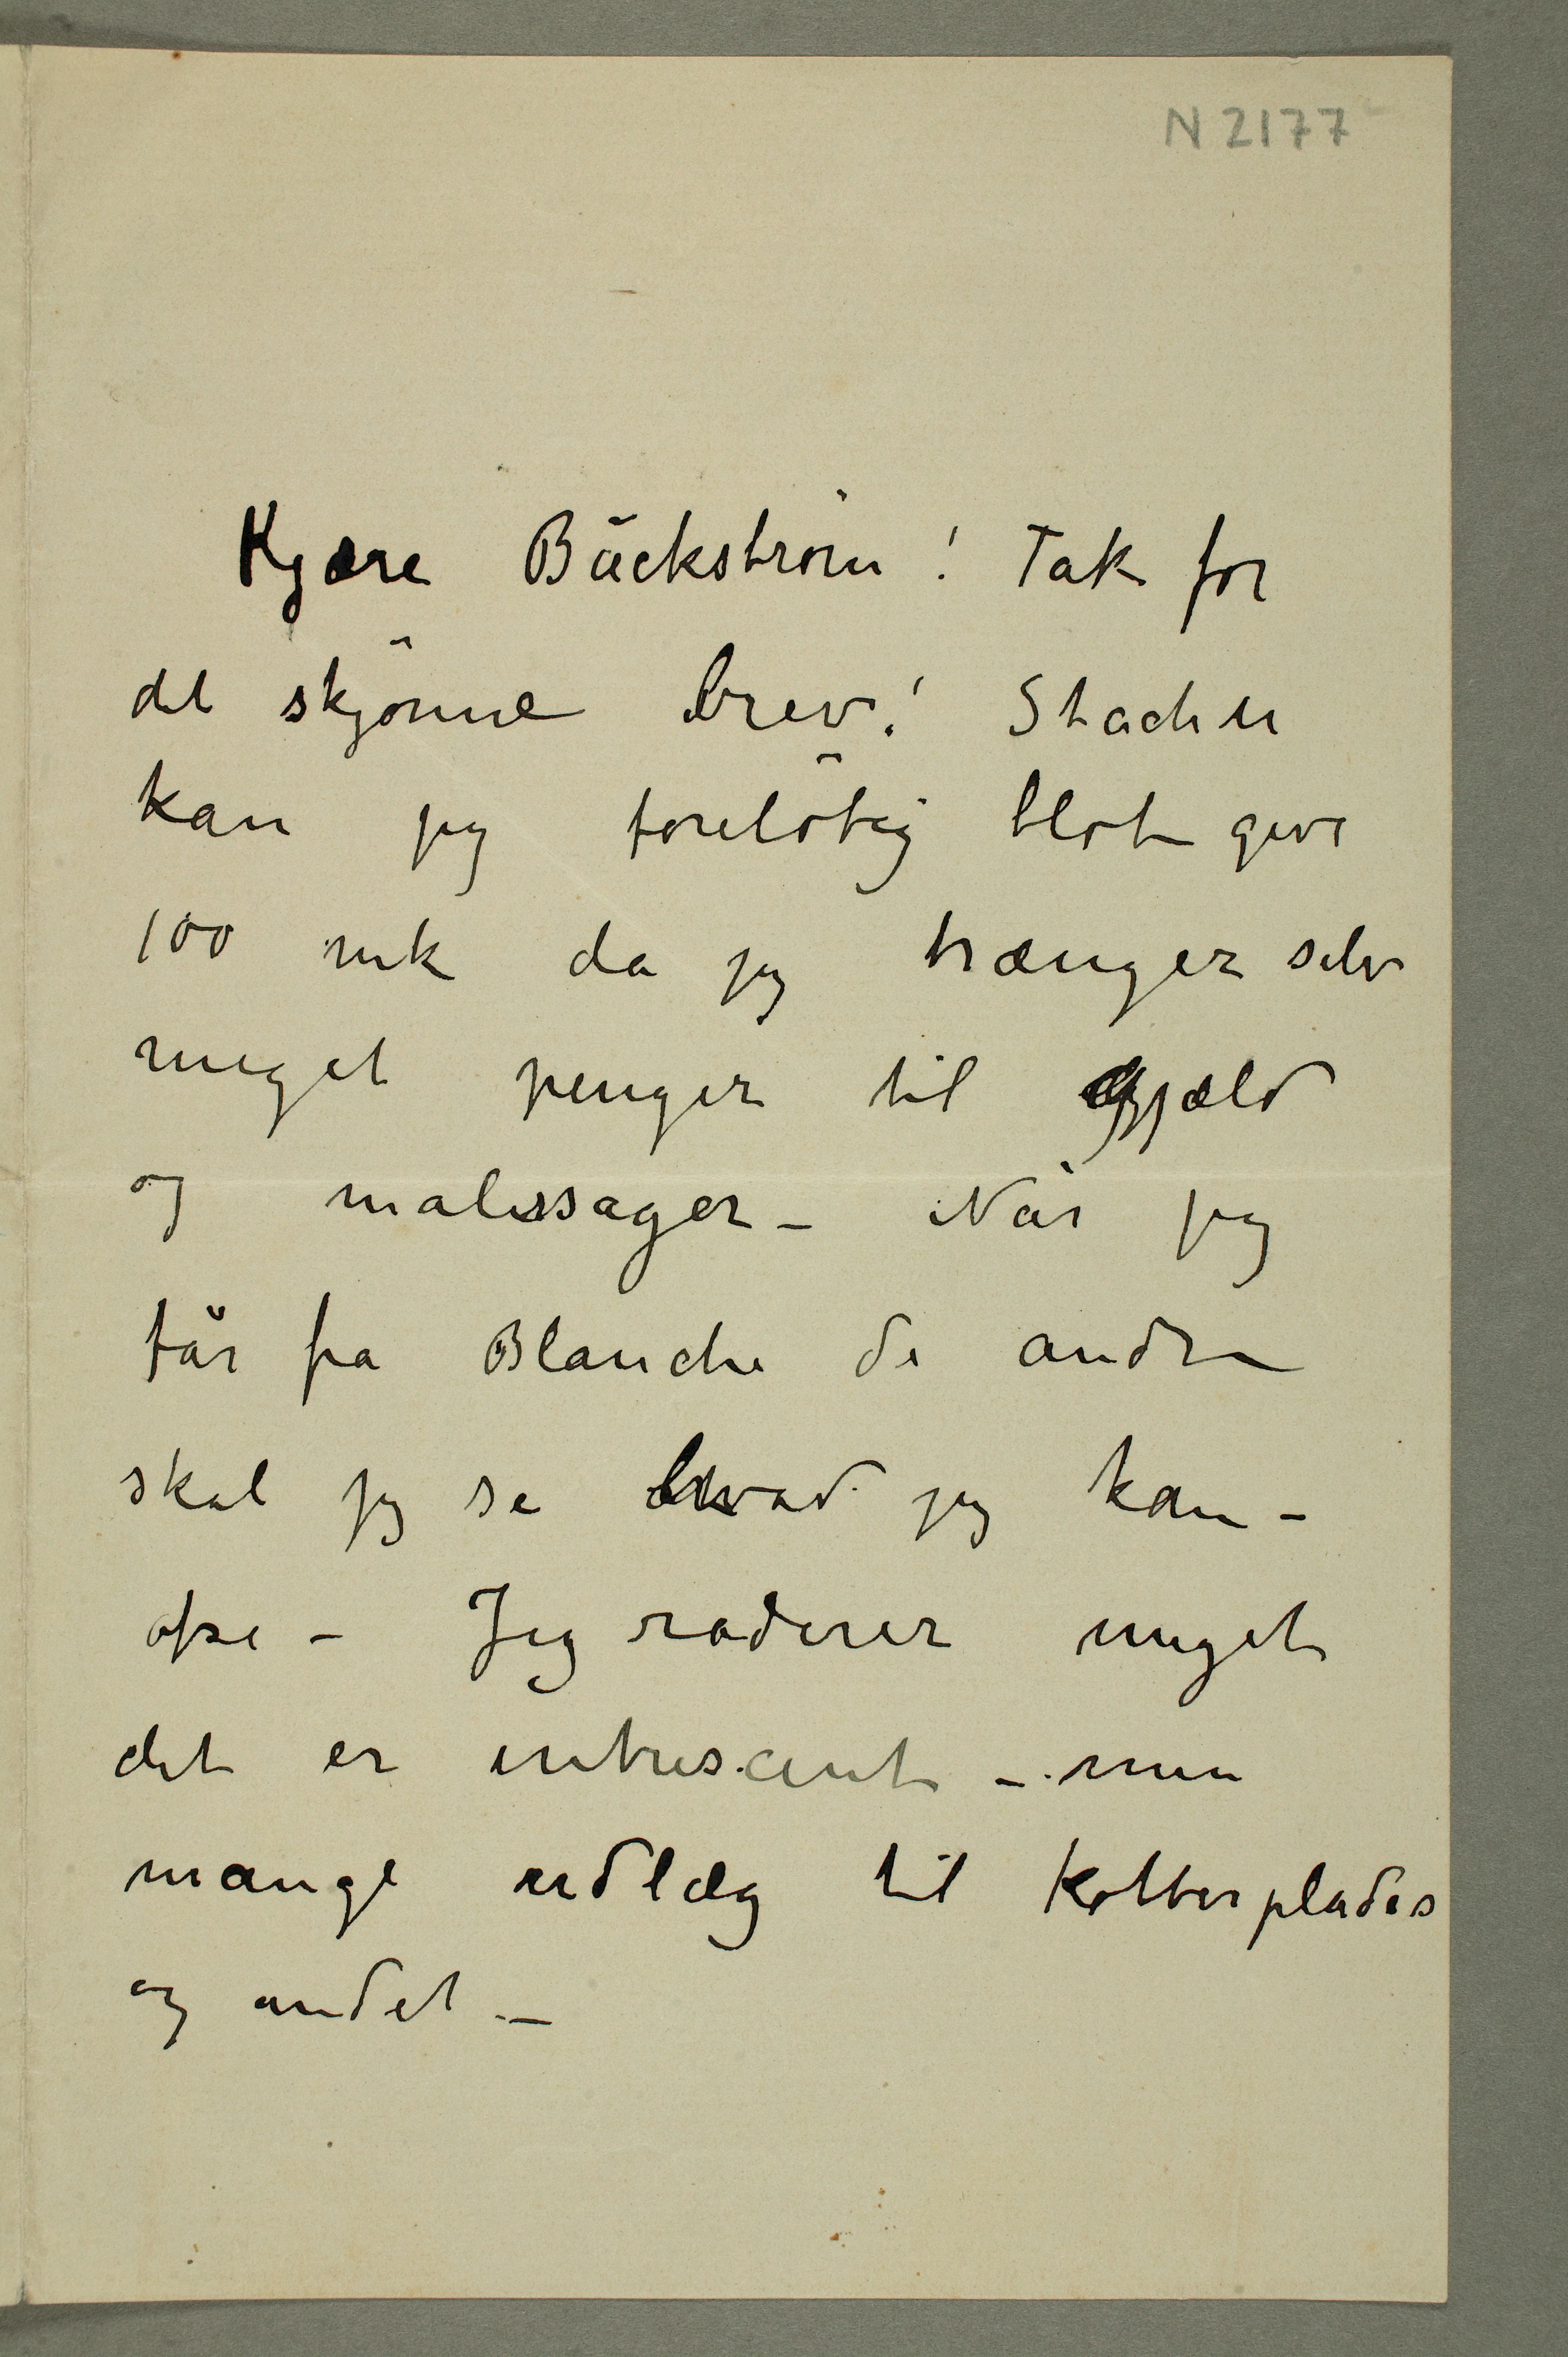 N 2177
Kjære Bäckström! Tak for
det skjönne brev! Stachu
kan jeg forelöbig blot give
100 mk da jeg trænger selv
meget penger til gjæld
og malessager – Når jeg
får fra Blanche de andre
skal jeg se hvad jeg kan –
ofre – Jeg raderer meget
det er intresant – men
mange udlæg til Kobberplades
og andet –